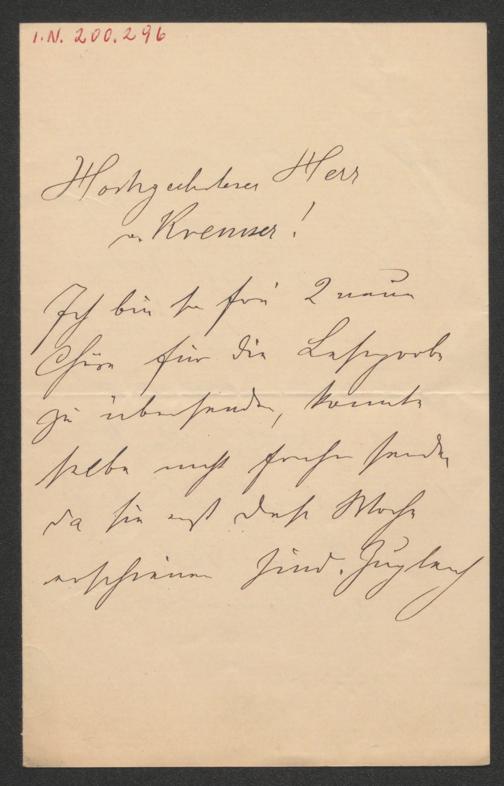 I.N. 200.296
Hochgeehrtester Herr
v. Kremser!
Ich bin so frei 2 neue
Chöre für die Leseprobe
zu übersenden, konnte
selbe nicht früher senden,
da sie erst diese Woche
erschienen sind. Zugleich